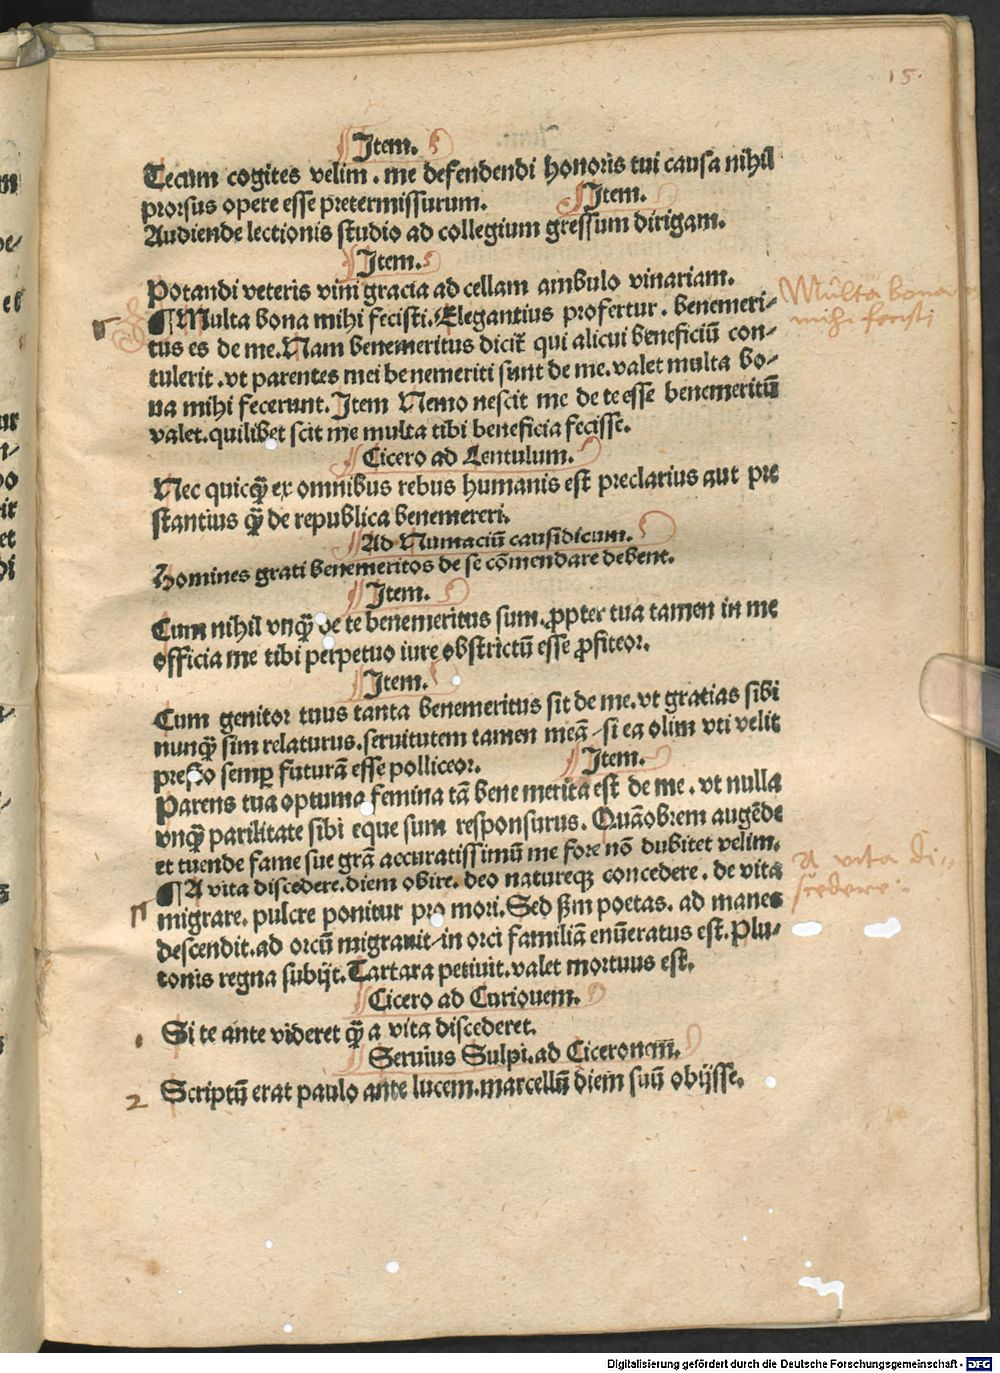 15.
Item.
Tecum cogites velim . me defendendi honoris tui causa nihil
prorsus opere esse pretermissurum. Item.
Audiende lectionis studio ad collegium gressum dirigam.
Item.
Potandi veteris vini gracia ad cellam ambulo vinariam.
¶Multa bona mihi fecisti. Elegantius profertur . benemeri⸗
tus es de me. Nam benemeritus dicit̃ qui alicui beneficiũ con⸗
tulerit . vt parentes mei benemeriti sunt de me. valet multa bo⸗
na mihi fecerunt. Item Nemo nescit me de te esse benemeritũ
valet. quilibet scit me multa tibi beneficia fecisse.
Multa bona
mihi fecisti
Cicero ad Lentulum.
Nec quicq̃ ex omnibus rebus humanis est preclarius aut pre
stantius q̃ de republica benemereri.
Ad Numaciũ causidicum.
Homines grati benemeritos de se cõmendare debent.
Item.
Cum nihil vnq̃ de te benemeritus sum. ꝓpter tua tamen in me
officia me tibi perpetuo iure obstrictũ esse ꝓfiteor.
Item.
Cum genitor tuus tanta benemeritus sit de me. vt gratias sibi
nunq̃ sim relaturus. seruitutem tamen meã / si ea olim vti velit
presto semꝑ futurã esse polliceor. Item.
Parens tua optuma femina tã bene merita est de me . vt nulla
vnq̃ parilitate sibi eque sum responsurus. Quãobrem augẽde
et tuende fame sue grã accuratissimũ me fore nõ dubitet velim.
¶A vita discedere. diem obire. deo natureqꝫ concedere . de vita
migrare. pulcre ponitur pro mori. Sed ẜm poetas. ad manes
descendit. ad orcũ migrauit / in orci familiã enũeratus est. Plu⸗
tonis regna subijt. Tartara petiuit. valet mortuus est.
A vita di⸗
scedere
Cicero ad Curionem.
1 Si te ante videret q̃ a vita discederet.
Seruius Sulpi. ad Ciceronem̃.
2 Scriptũ erat paulo ante lucem. marcellũ diem suũ obijsse.
Digitalisierung gefördert durch die Deutsche Forschungsgemeinschaft - DFG